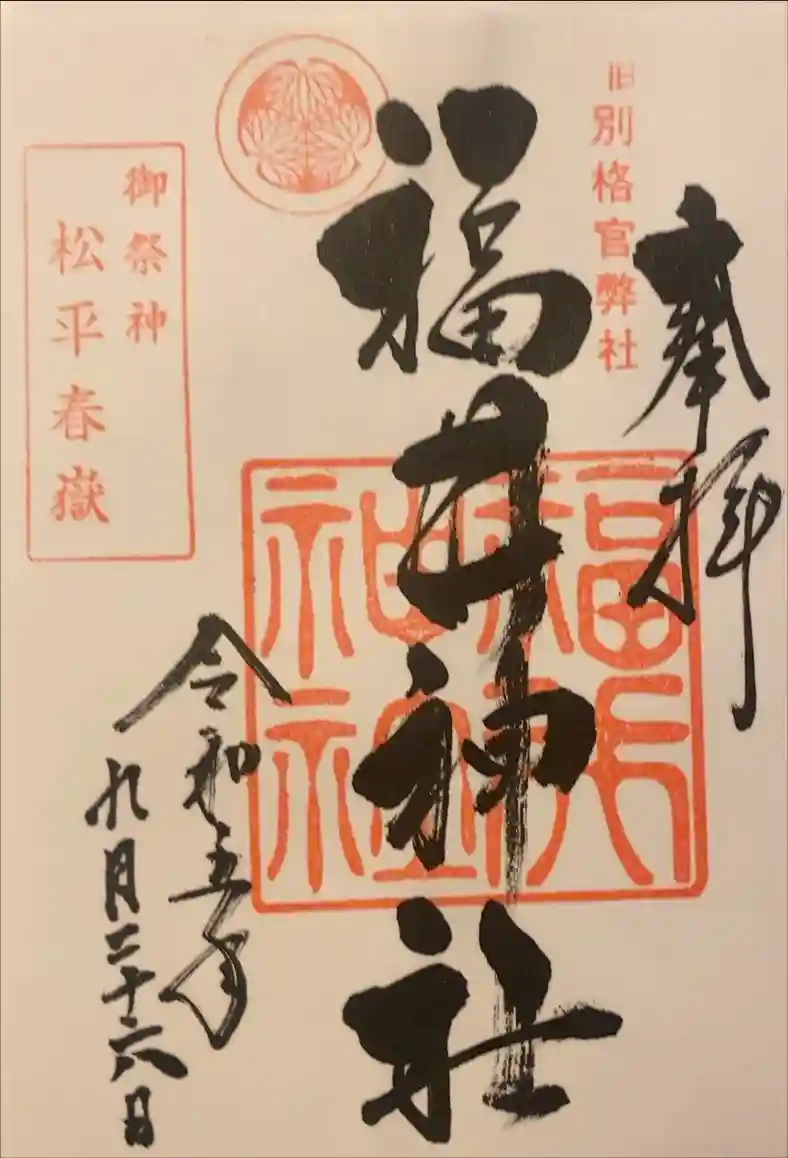 奉拝
旧別格官弊社
福井神社
令和五年
九月二十六日
御祭神
松平春嶽